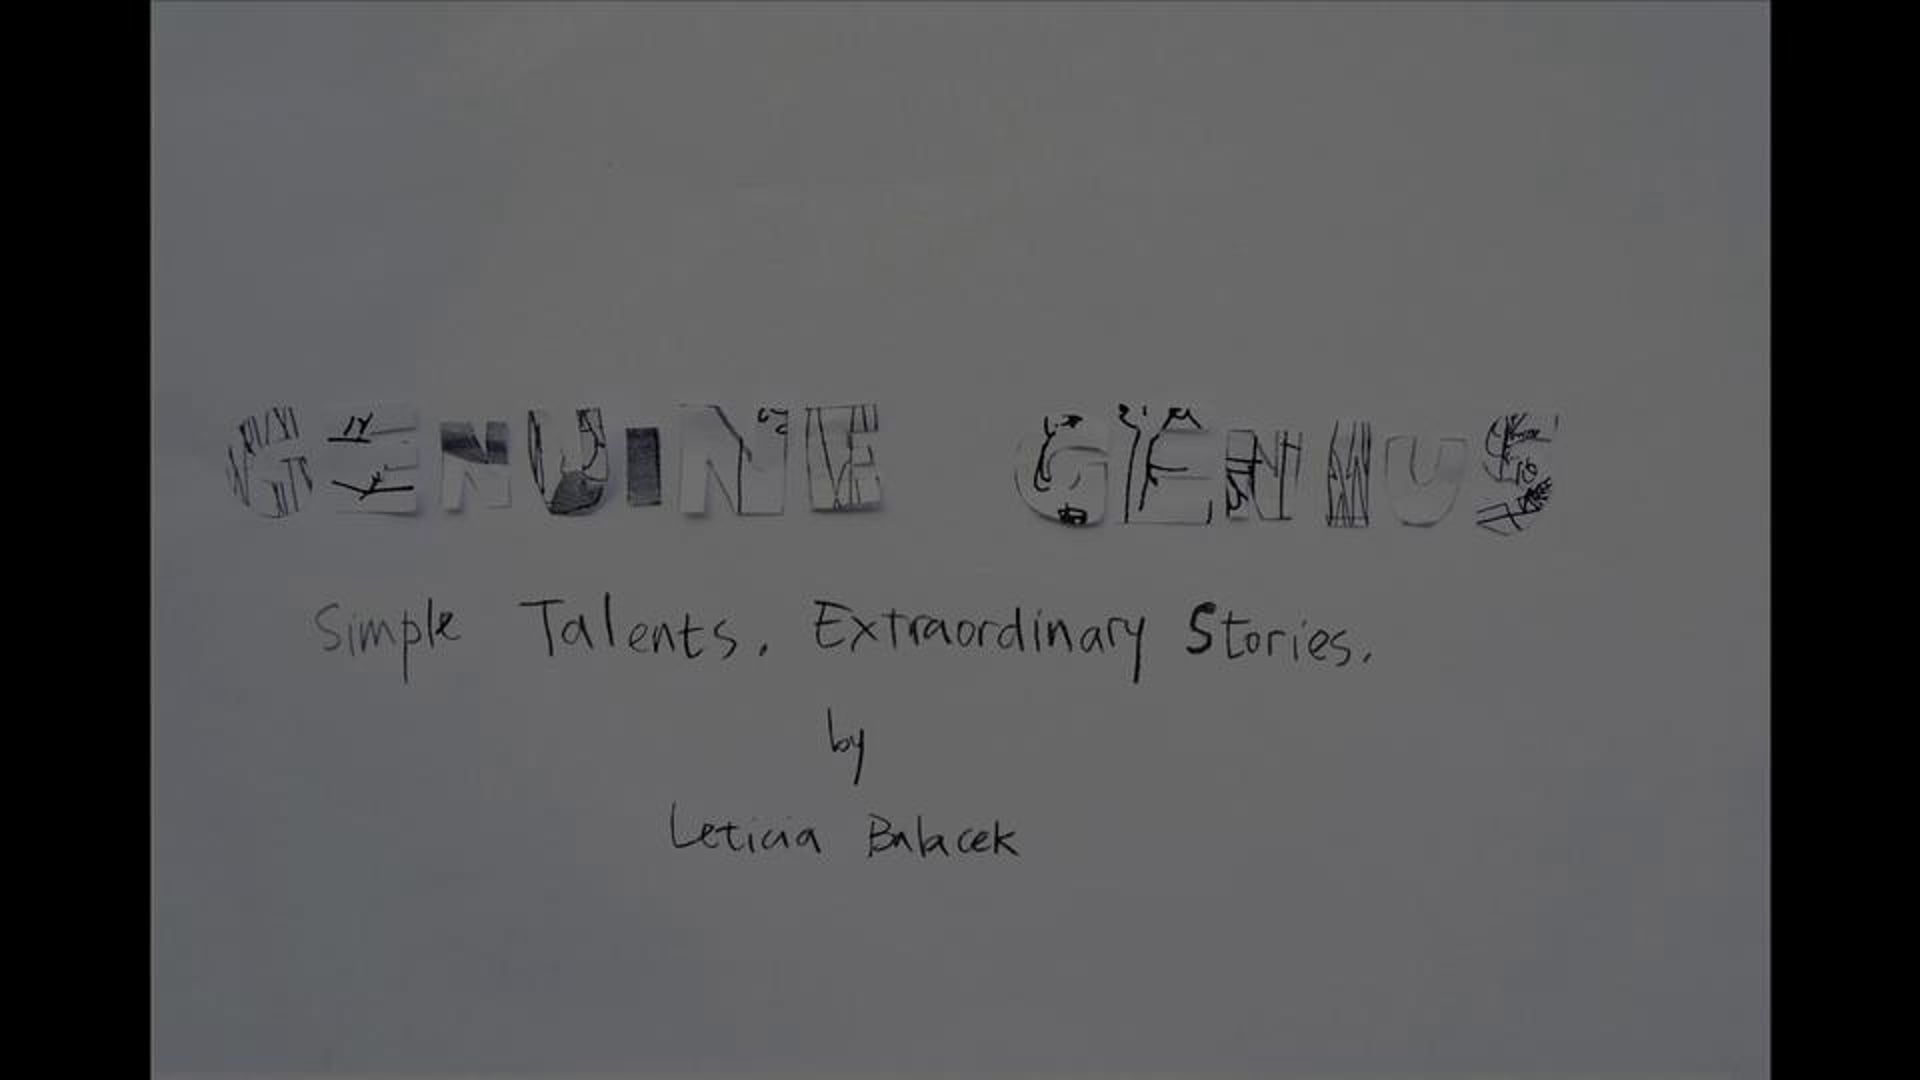 GENUINE GENIUS
Simple Talents. Extraordinary Stories.
by
Leticia Balacek